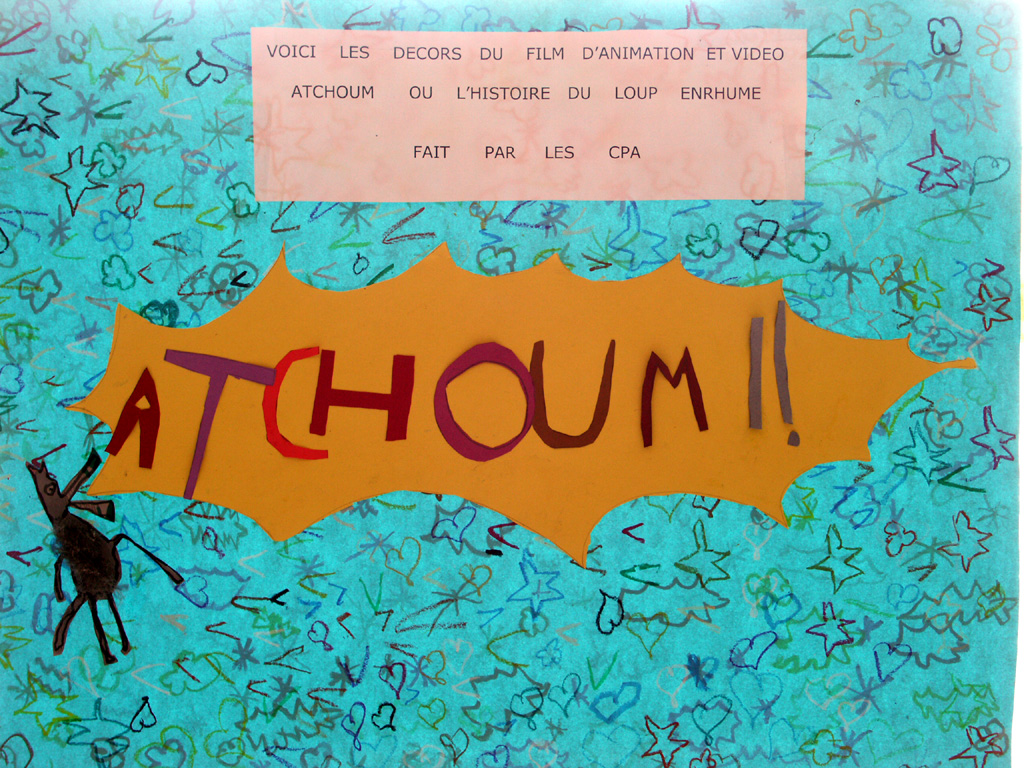 VOICI LES DECORS DU FILM D'ANIMATION ET VIDEO
ATCHOUM OU L'HISTOIRE DU LOUP ENRHUME
FAIT PAR LES CPA
ATCHOUM !!